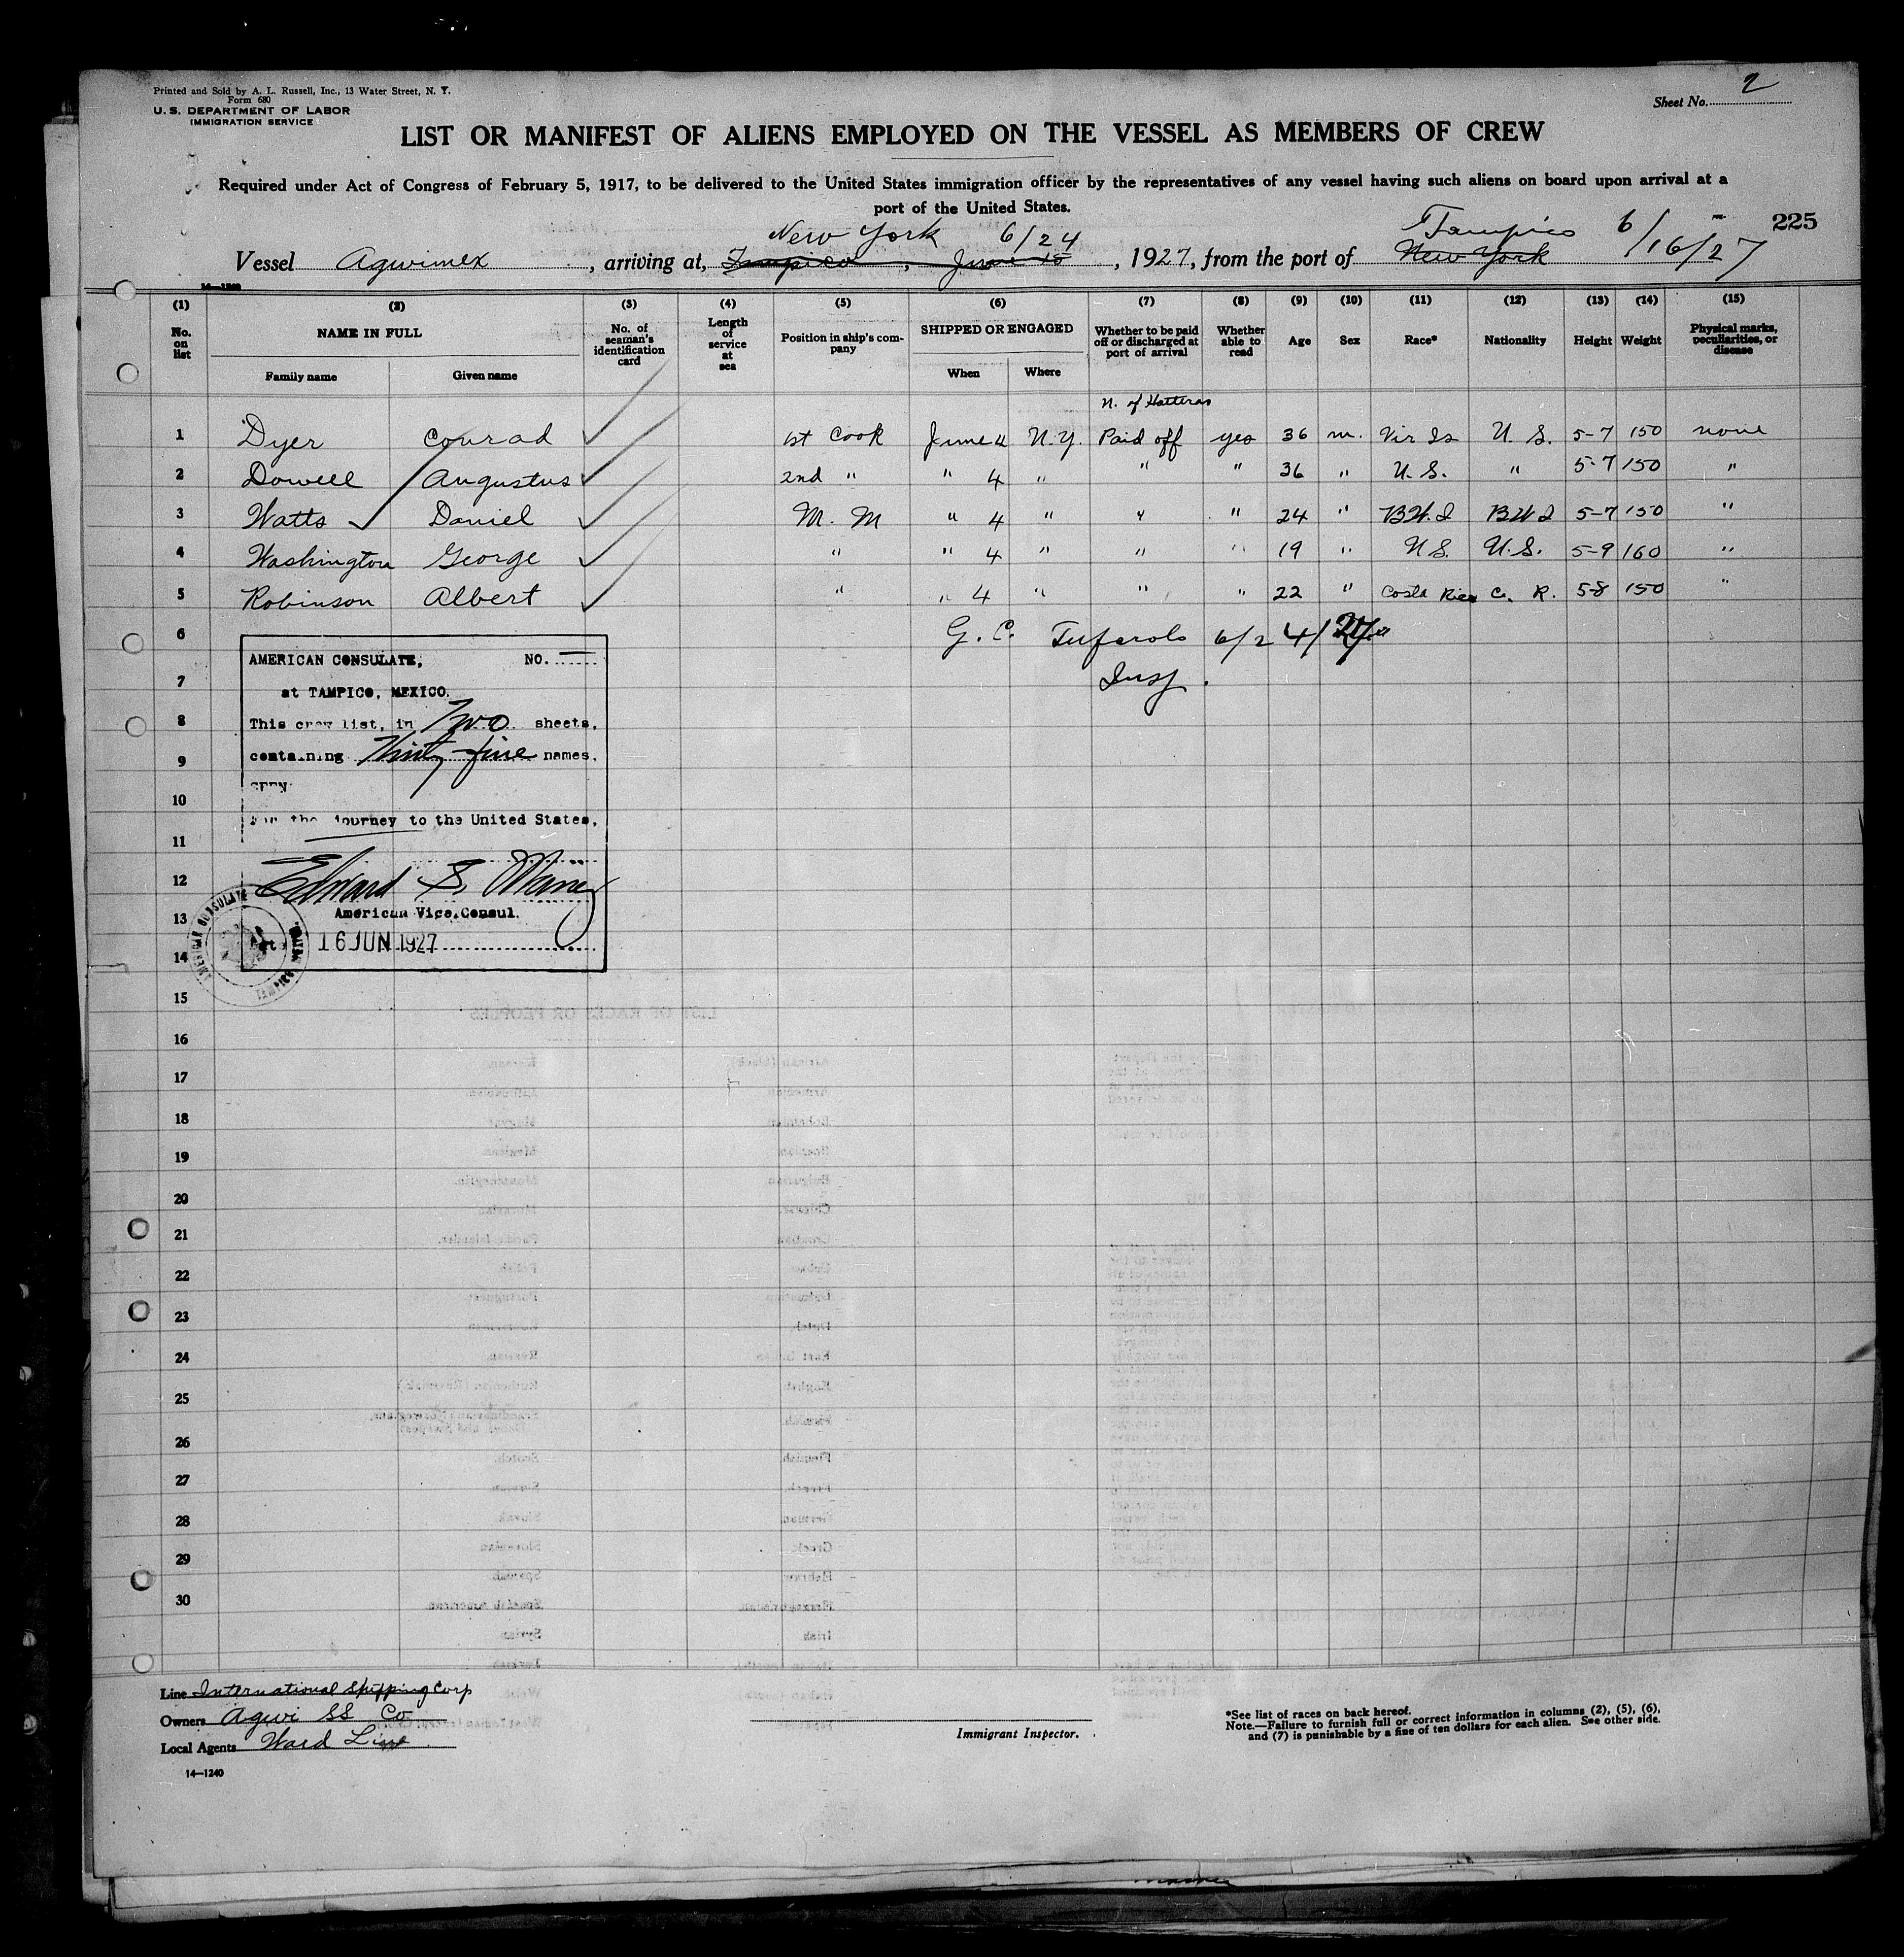 Printed and Sold by A. L. Russell, Inc., 13 Water Street, N. Y.
Form 680
U. S. DEPARTMENT OF LABOR
IMMIGRATION SERVICE
Sheet No. 2
LIST OR MANIFEST OF ALIENS EMPLOYED ON THE VESSEL AS MEMBERS OF CREW
Required under Act of Congress of February 5, 1917, to be delivered to the United States immigration officer by the representatives of any vessel having such aliens on board upon arrival at a
port of the United States.
225
New York 6/24 Tampico 6/16/27
Vessel Agwimex, arriving at, Tampico, June 15, 1927, from the port of New York
(1) (2) (3) (4) (5) (6) (7) (8) (9) (10) (11) (12) (13) (14) (15)
No. on list NAME IN FULL Family name Given name No. of seaman's identification card Length of service at sea Position in ship's company SHIPPED OR ENGAGED When Where Whether to be paid off or discharged at port of arrival Whether able to read Age Sex Race* Nationality Height Weight Physical marks, peculiarities, or disease
N. of Hatteras
1 Dyer Conrad 1st Cook June 4 N.Y. Paid off yes 36 m. Vir Is U. S. 5-7 150 none
2 Dowell Augustus 2nd " " 4 " " " 36 " U. S. " 5-7 150 "
3 Watts Daniel M. M " 4 " " " 24 " B.W.I B W I 5-7 150 "
4 Washington George " " 4 " " " 19 " U S. U. S. 5-9 160 "
5 Robinson Albert " " 4 " " " 22 " Costa Rica C. R. 5-8 150 "
6 G. C. 6/24/27
7 Insp.
8
9
10
11
12
13
14
15
16
17
18
19
20
21
22
23
24
25
26
27
28
29
30
AMERICAN CONSULATE, NO. —
at TAMPICO, MEXICO.
This crew list, in Two sheets,
containing Thirty-five names.
SEEN
For the journey to the United States,
Edward S. Maney
American Vice Consul.
16 JUN 1927
AMERICAN CONSULATE
TAMPICO, MEXICO
Line International Shipping Corp
Owners Agwi SS Co
Local Agents Ward Line
14—1240
Immigrant Inspector.
*See list of races on back hereof.
Note.—Failure to furnish full or correct information in columns (2), (5), (6),
and (7) is punishable by a fine of ten dollars for each alien. See other side.